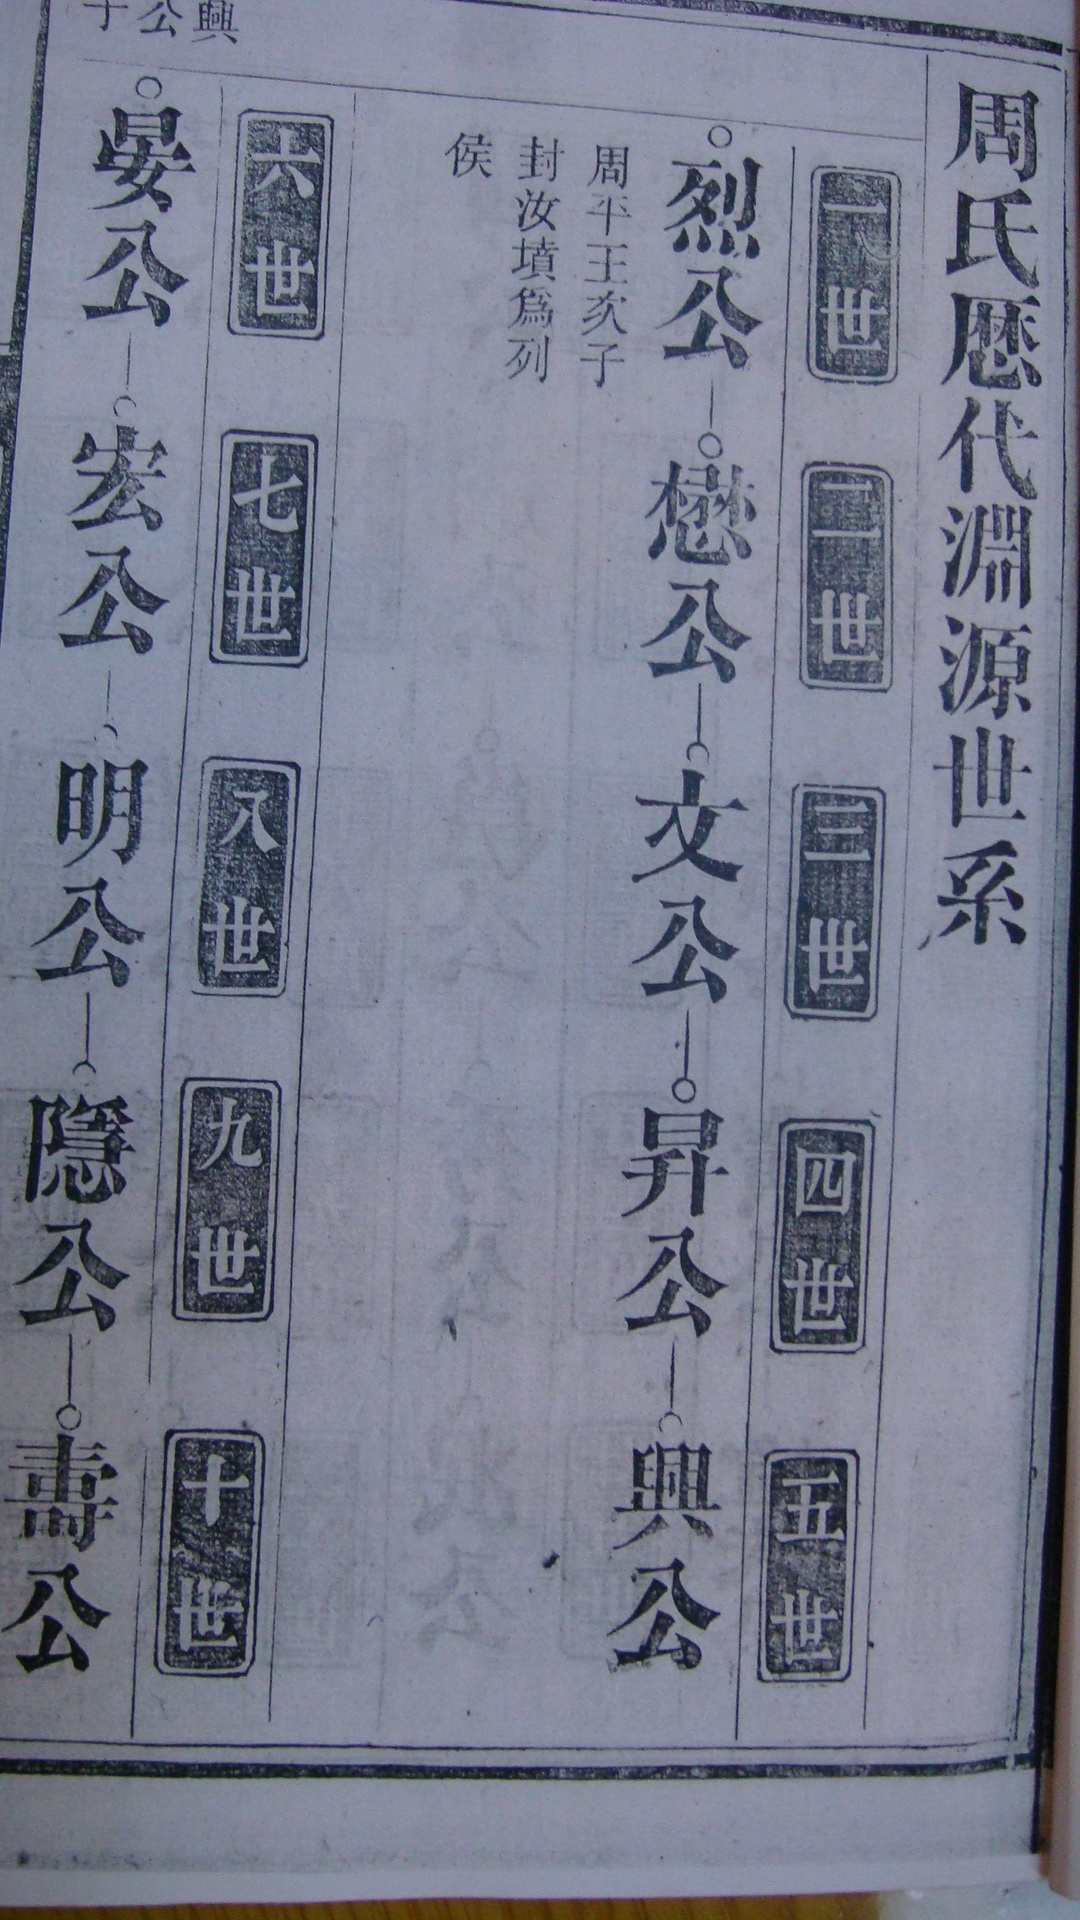 周氏歷代淵源世系
一世
二世
三世
四世
五世
烈公
懋公
文公
昇公
興公
周平王次子
封汝墳為列
侯
六世
七世
八世
九世
十世
興公子
晏公
宏公
明公
隱公
壽公